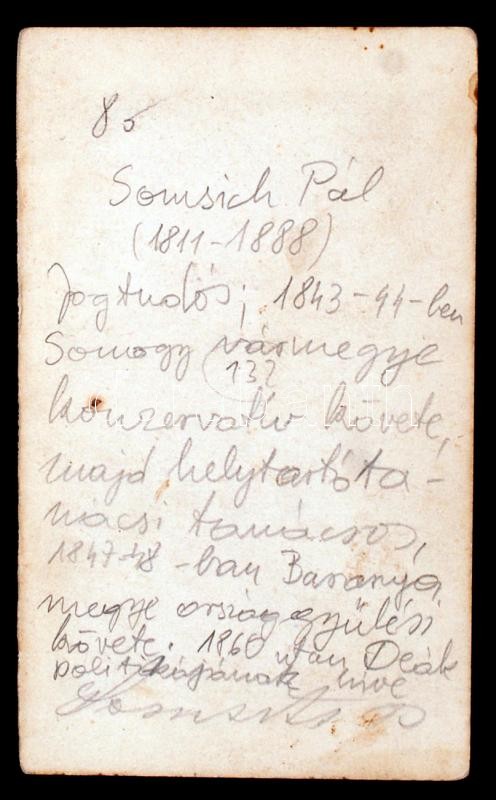 85
Somsich Pál
(1811-1888)
Jogtudós; 1843-44-ben
Somogy vármegye
132
konzervatív követe,
majd helytartóta-
nácsi tanácsos,
1847-48-ban Baranya
megye országgyűlési
követe. 1860 után Deák
politikájának híve